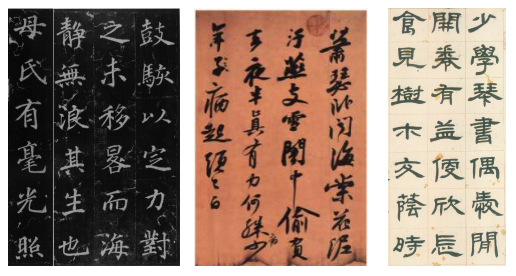 鼓駭以定力對
之未移晷而海
靜無浪其生也
母氏有毫光照
蕭瑟卧聞海棠花泥
汙燕支雪闇中偷負
去夜半真有力何殊少
年子病起頭已白
病
少學琴書偶愛閒
開卷有益便欣辰
食見樹木交蔭時